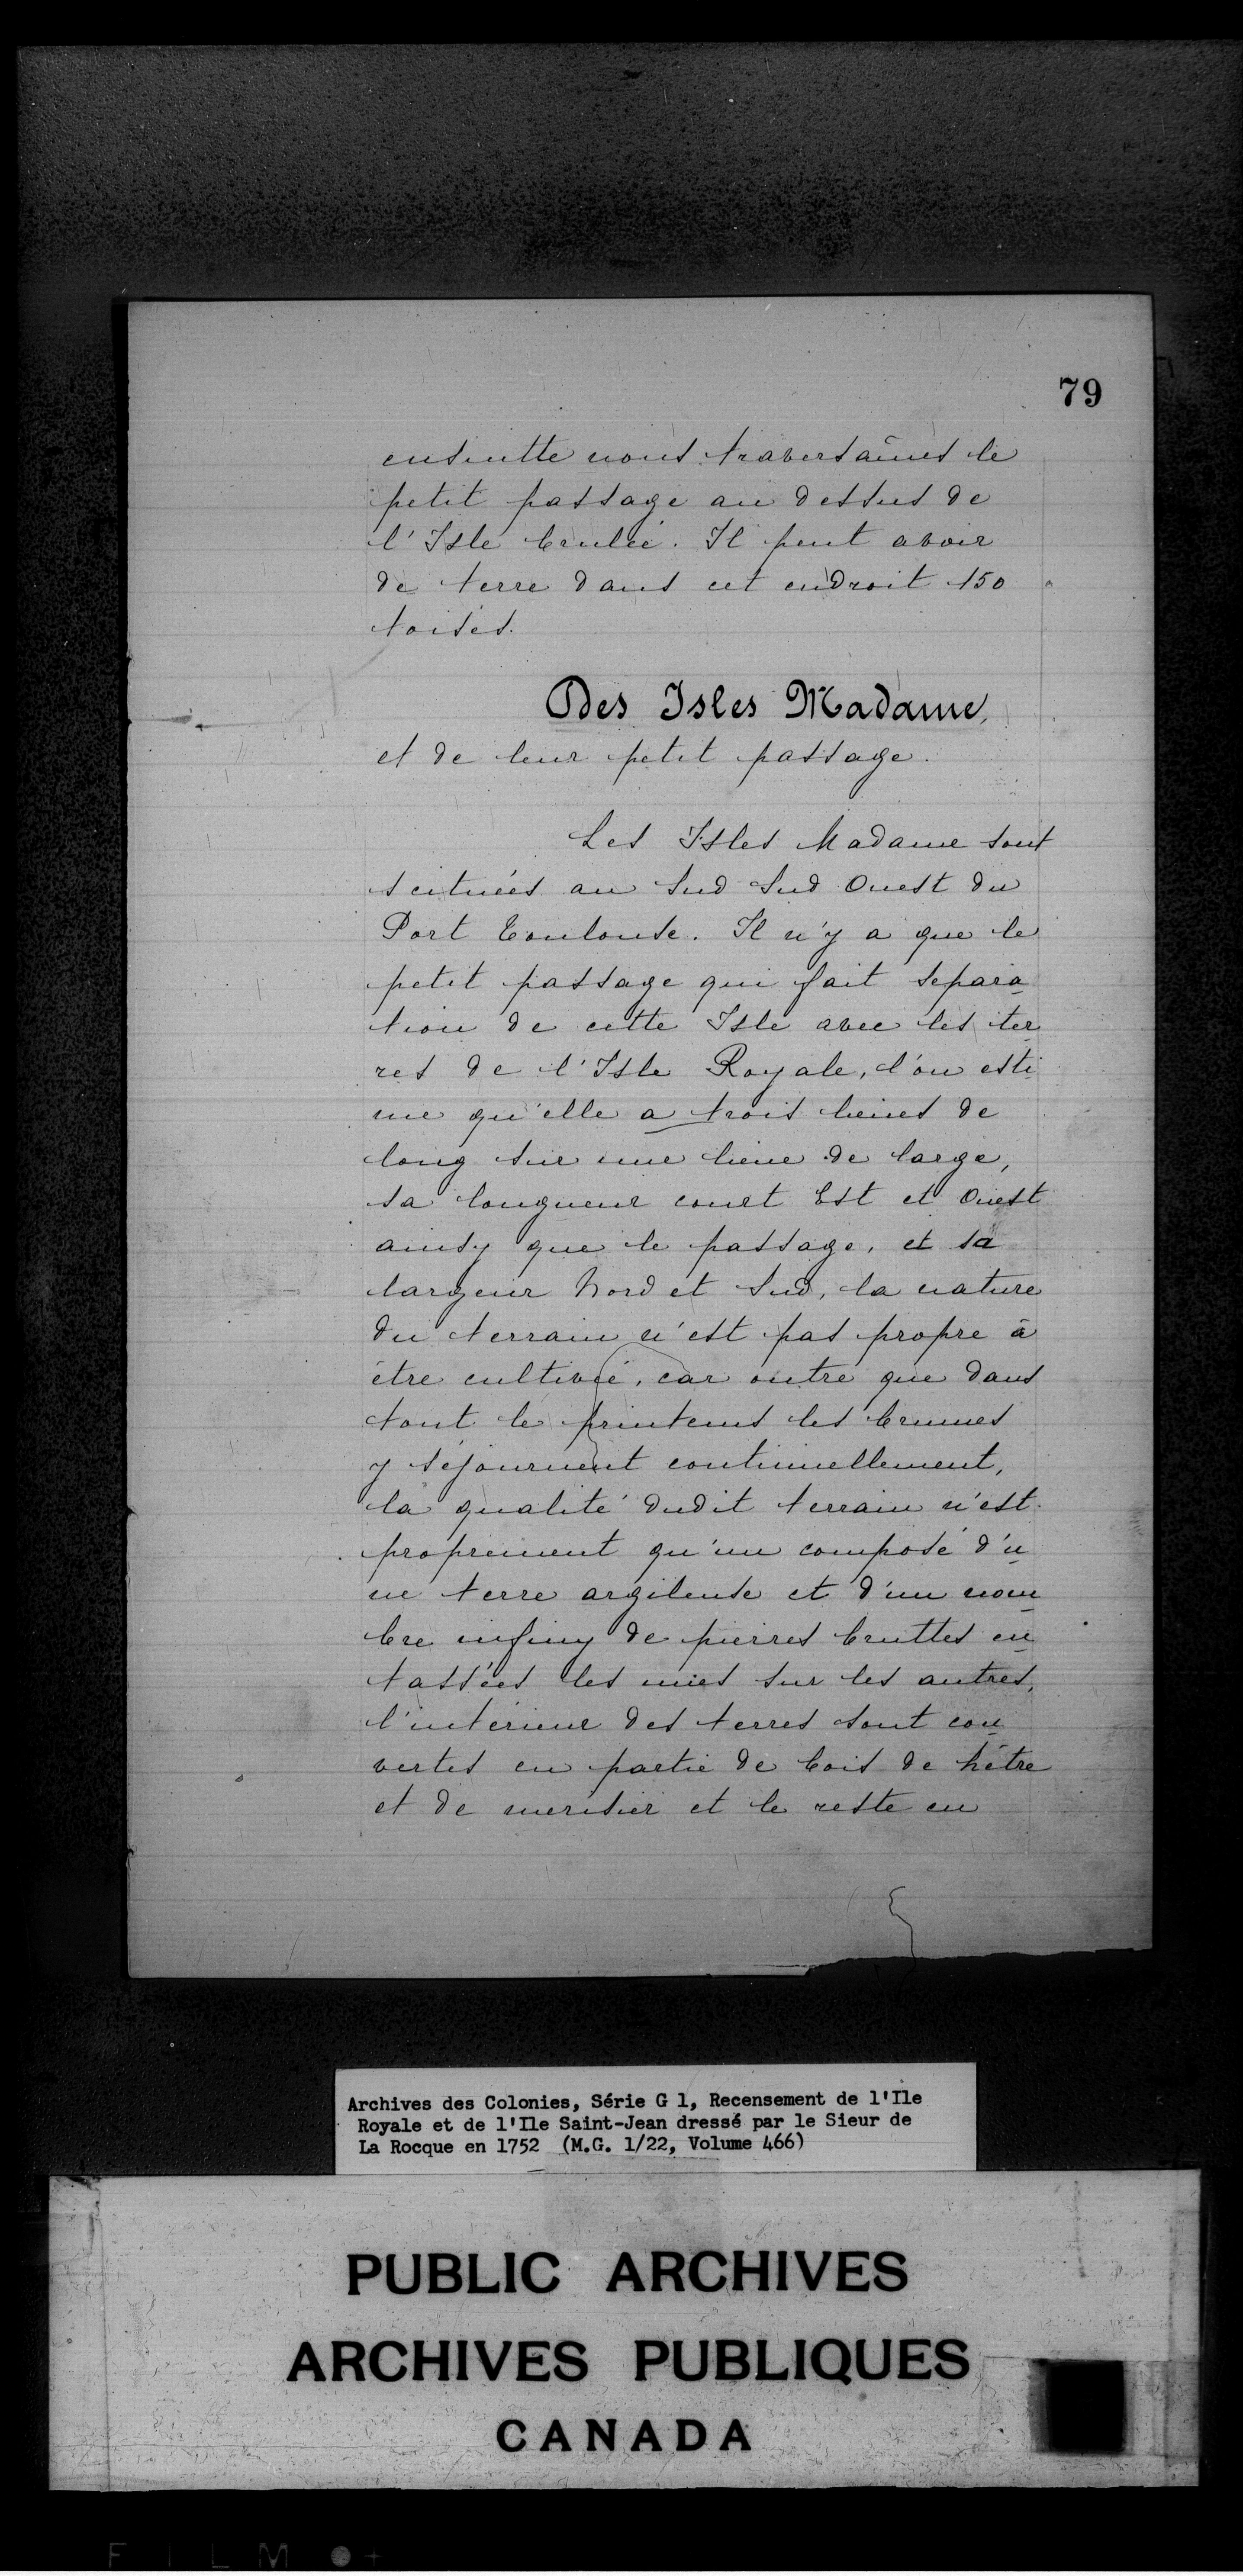 79
ensuitte nous traversâmes le
petit passage au dessus de
l'Isle brulée. Il peut avoir
de terre dans cet endroit 150
toises.
Des Isles Madame,
et de leur petit passage.
Les Isles Madame sont
scituées au Sud Sud Ouest du
Port Toulouse. Il n'y a que le
petit passage qui fait separa
tion de cette Isle avec les ter
res de l'Isle Royale, l'on esti
me qu'elle a trois lieues de
long sur une lieue de large,
sa longueur court Est et Ouest
ainsy que le passage, et sa
largeur Nord et Sud, la nature
du terrain n'est pas propre à
être cultivé, car outre que dans
tout le printems les brumes
y séjournent continuellement,
la qualité dudit terrain n'est
proprement qu'un composé d'u
ne terre argileuse et d'un nom
bre infiny de pierres bruttes en
tassées les unes sur les autres,
l'intérieur des terres sont cou
vertes en partie de bois de hêtre
et de merisier et le reste en
Archives des Colonies, Série G 1, Recensement de l'Ile
Royale et de l'Ile Saint-Jean dressé par le Sieur de
La Rocque en 1752 (M.G. 1/22, Volume 466)
PUBLIC ARCHIVES
ARCHIVES PUBLIQUES
CANADA
FILM